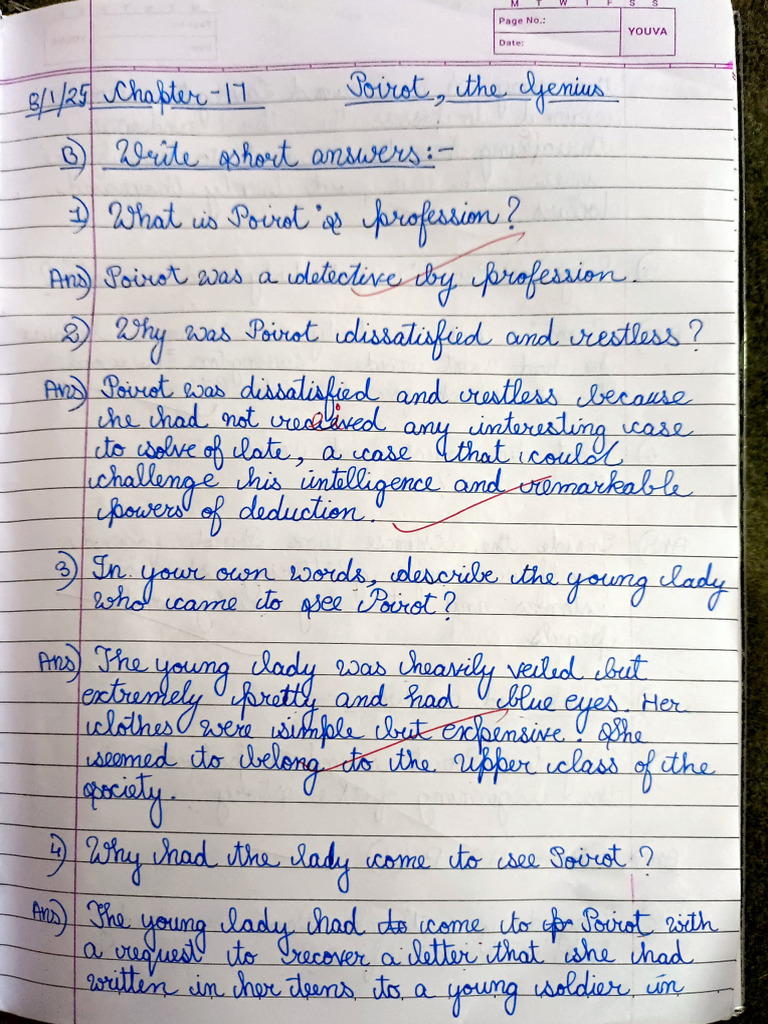 M T W T F S S
Page No.:
YOUVA
Date:
8/1/25 Chapter-17 Poirot, the Genius
B) Write short answers:-
1) What is Poirot's profession?
Ans) Poirot was a detective by profession.
2) Why was Poirot dissatisfied and restless?
Ans) Poirot was dissatisfied and restless because
he had not received any interesting case
to solve of late, a case that could
challenge his intelligence and remarkable
powers of deduction.
3) In your own words, describe the young lady
who came to see Poirot?
Ans) The young lady was heavily veiled but
extremely pretty and had blue eyes. Her
clothes were simple but expensive. She
seemed to belong to the upper class of the
society.
4) Why had the lady come to see Poirot?
Ans) The young lady had to come to Poirot with
a request to recover a letter that she had
written in her teens to a young soldier in